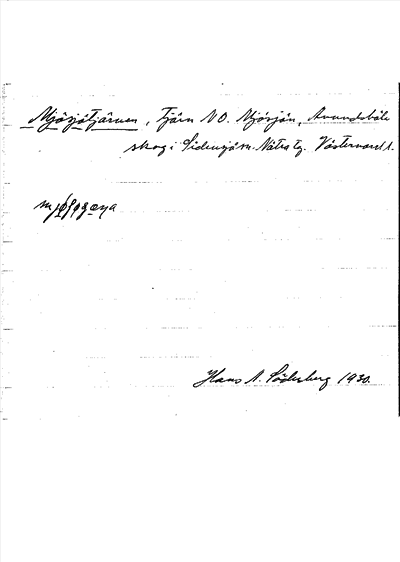 Mjösjötjärnen, Tjärn NO. Mjösjön, Avundsböle
skog i Sidensjö sn. Nätra tg. Västernorrl. l.
Hans A. Söderberg 1930.